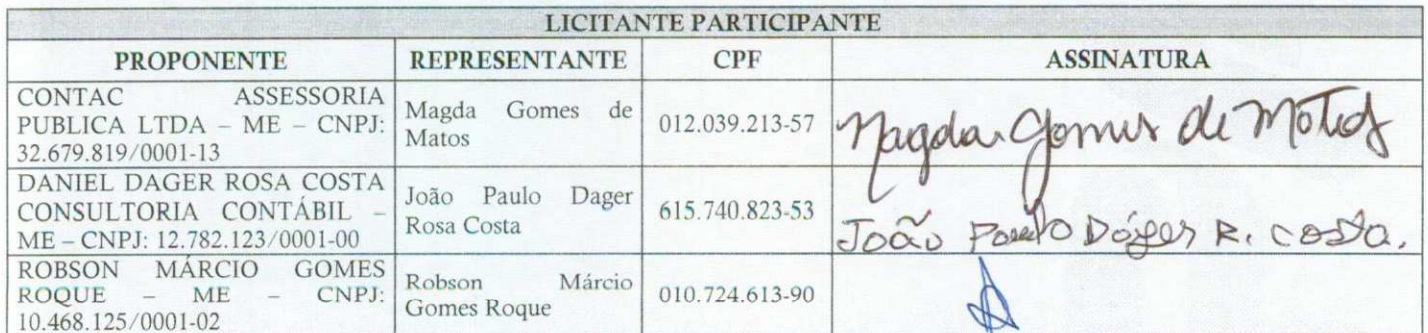 LICITANTE PARTICIPANTE
PROPONENTE REPRESENTANTE CPF ASSINATURA
CONTAC ASSESSORIA
PUBLICA LTDA – ME – CNPJ:
32.679.819/0001-13
Magda Gomes de
Matos
012.039.213-57
Magda Gomes de Matos
DANIEL DAGER ROSA COSTA
CONSULTORIA CONTÁBIL –
ME – CNPJ: 12.782.123/0001-00
João Paulo Dager
Rosa Costa
615.740.823-53
João Paulo Dáger R. Costa.
ROBSON MÁRCIO GOMES
ROQUE – ME – CNPJ:
10.468.125/0001-02
Robson Márcio
Gomes Roque
010.724.613-90